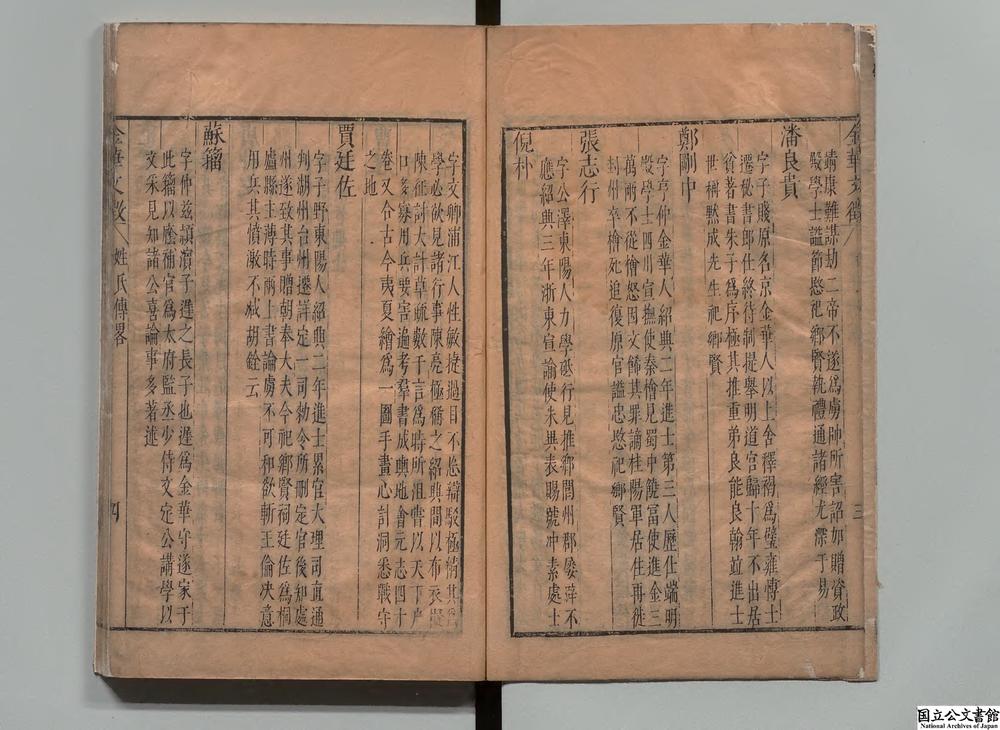 金華文徵
三
靖康難謀劫二帝不遂爲虜帥所害詔加贈資政
殿學士諡節愍祀鄉賢執禮通諸經尤深于易
潘良貴
字子賤原名京金華人以上舍釋褐爲璧雍博士
遷秘書郎仕終待制提舉明道宮歸十年不出居
貧著書朱子爲序極其推重弟良能良翰並進士
世稱黙成先生祀鄉賢
鄭剛中
字亨仲金華人紹興二年進士第三人歷仕端明
殿學士四川宣撫使秦檜見蜀中饒富使進金三
萬兩不從檜怒因文飾其罪謫桂陽軍居住再徙
封州卒檜死追復原官諡忠愍祀鄉賢
張志行
字公澤東陽人力學砥行見推鄉閭州郡屡辟不
應紹興三年浙東宣諭使朱異表賜號冲素處士
倪朴
字文卿浦江人性敏捷過目不忘辯駁極情其爲
學必欲見諸行事陳亮極稱之紹興間以布衣擬
陳征討大計草疏數千言爲時所沮嘗以天下户
口多寡用兵要害遍考羣書成輿地會元志四十
卷又合古今夷夏繪爲一圖手畫心計洞悉戰守
之地
賈廷佐
字子野東陽人紹興二年進士累官大理司直通
判湖州台州遷詳定一司勑令所刪定官後知處
州遂致其事贈朝奉大夫今祀鄉賢祠廷佐爲桐
廬縣主薄時兩上書論虜不可和欲斬王倫決意
用兵其憤激不减胡銓云
蘇籀
字仲兹潁濱子遲之長子也遲爲金華守遂家于
此籀以廕補官爲太府監丞少侍文定公講學以
文采見知諸公喜論事多著述
金華文徵
姓氏傳畧
四
国立公文書館
National Archives of Japan